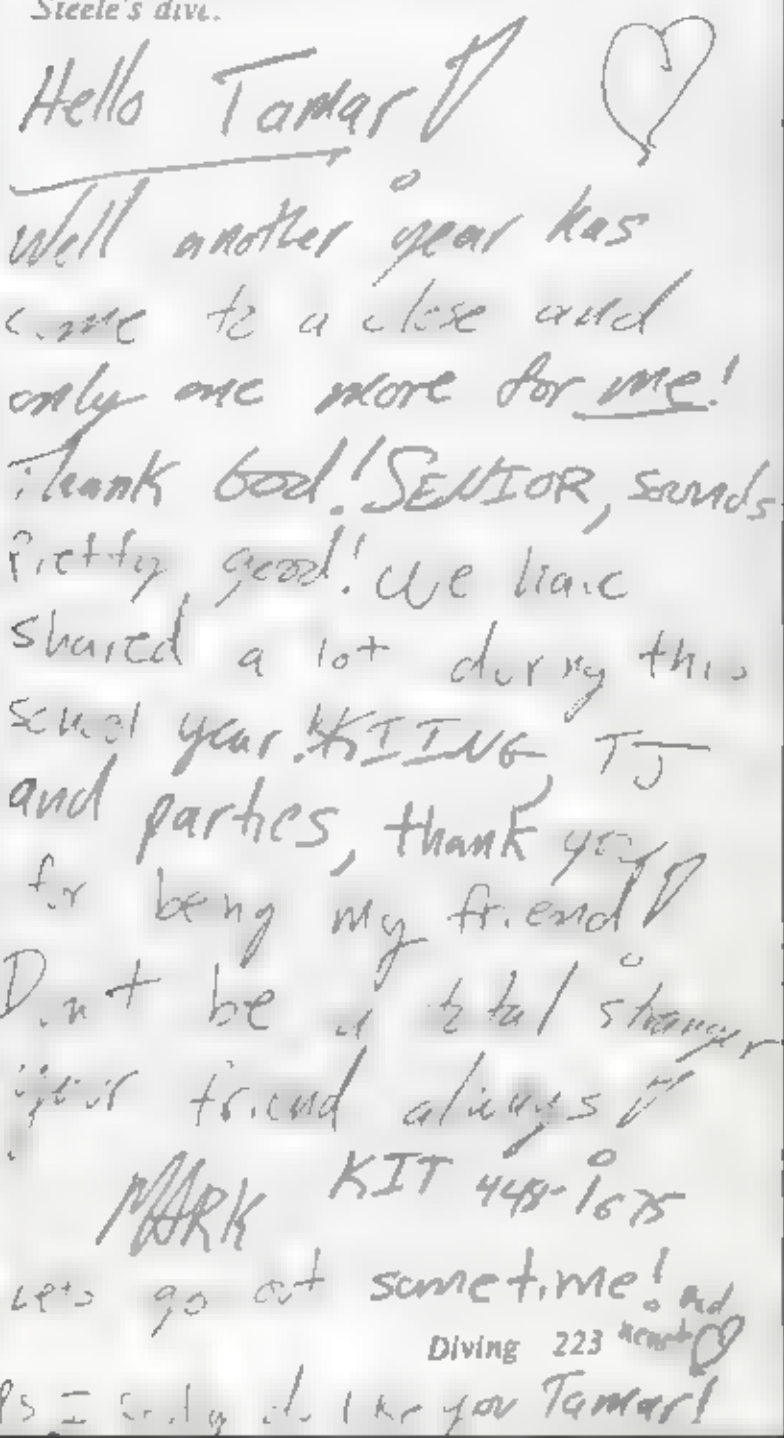 Steele's dive.
Hello Tamar!
Well another year has
come to a close and
only one more for me!
Thank God! SENIOR, sounds
Pretty good! We have
shared a lot during this
school year! SKIING, TJ
and parties, thank you
for being my friend!
Don't be a total stranger
your friend always!
MARK KIT 448-1675
Lets go out sometime! and
Diving 223
PS. I do like you Tamar!